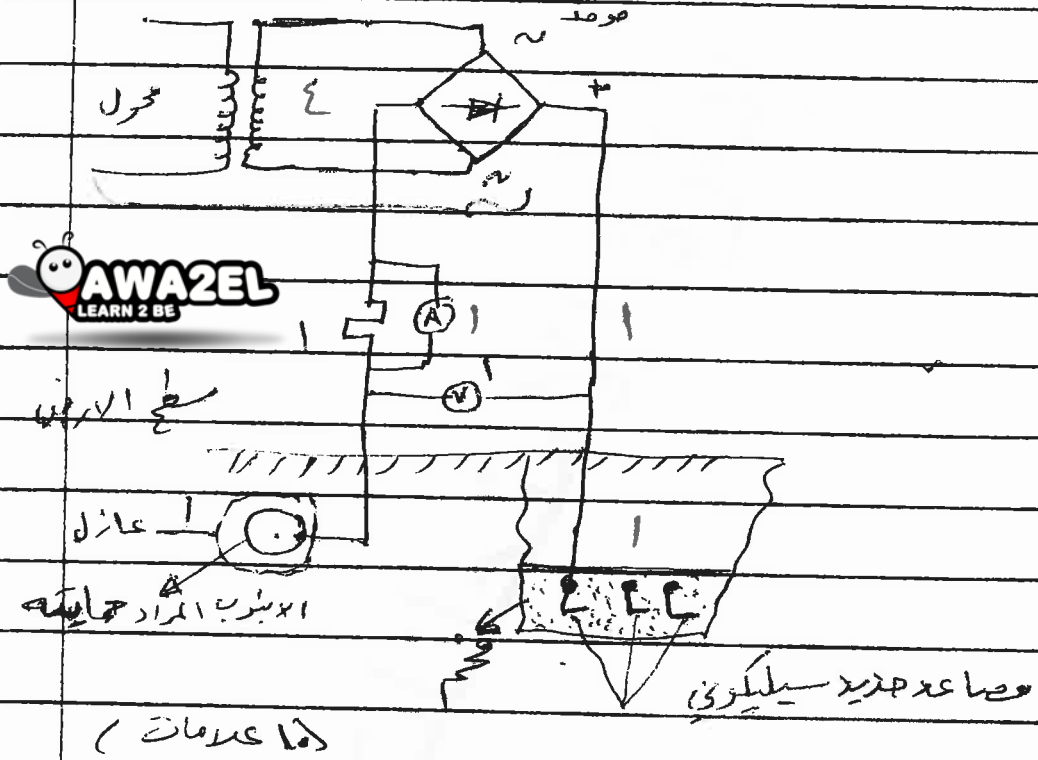 موحد
~
+
محول
٤
~
AWA2EL
LEARN 2 BE
١
A
١
١
١
V
سطح الارض
١
عازل
١
١
الانبوب المراد حمايته
مصاعد حديد سيليكوني
(١٠ علامات)